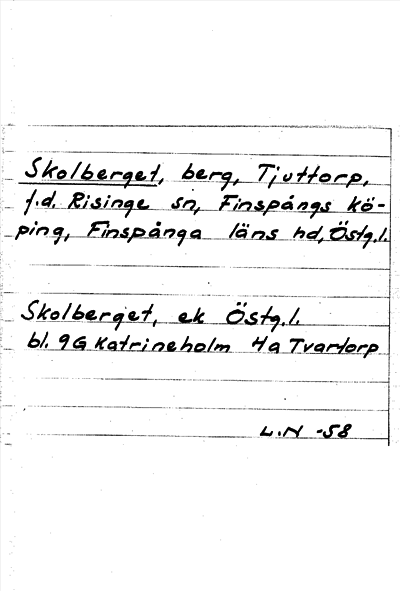 Skolberget, berg, Tjuttorp,
f.d. Risinge sn, Finspångs kö-
ping, Finspånga läns hd, Östg.l.
Skolberget, ek Östg.l.
bl. 9G Katrineholm 4a Tvartorp
L.N -58